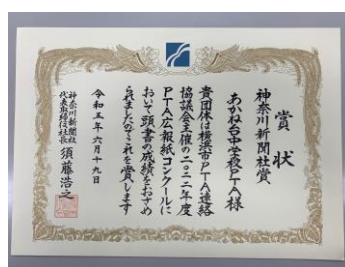 賞状
神奈川新聞社賞
あかね台中学校PTA様
貴団体は横浜市PTA連絡
協議会主催の二〇二二年度
PTA広報紙コンクールに
おいて頭書の成績をおさめ
られましたのでこれを賞します
令和五年六月十九日
神奈川新聞社
代表取締役社長 須藤浩之